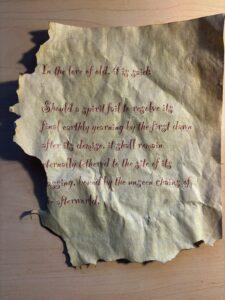 In the lore of old, it is said:
Should a spirit fail to resolve its
final earthly yearning by the first dawn
after its demise, it shall remain
eternally tethered to the site of its
passing, bound by the unseen chains of
the afterworld.